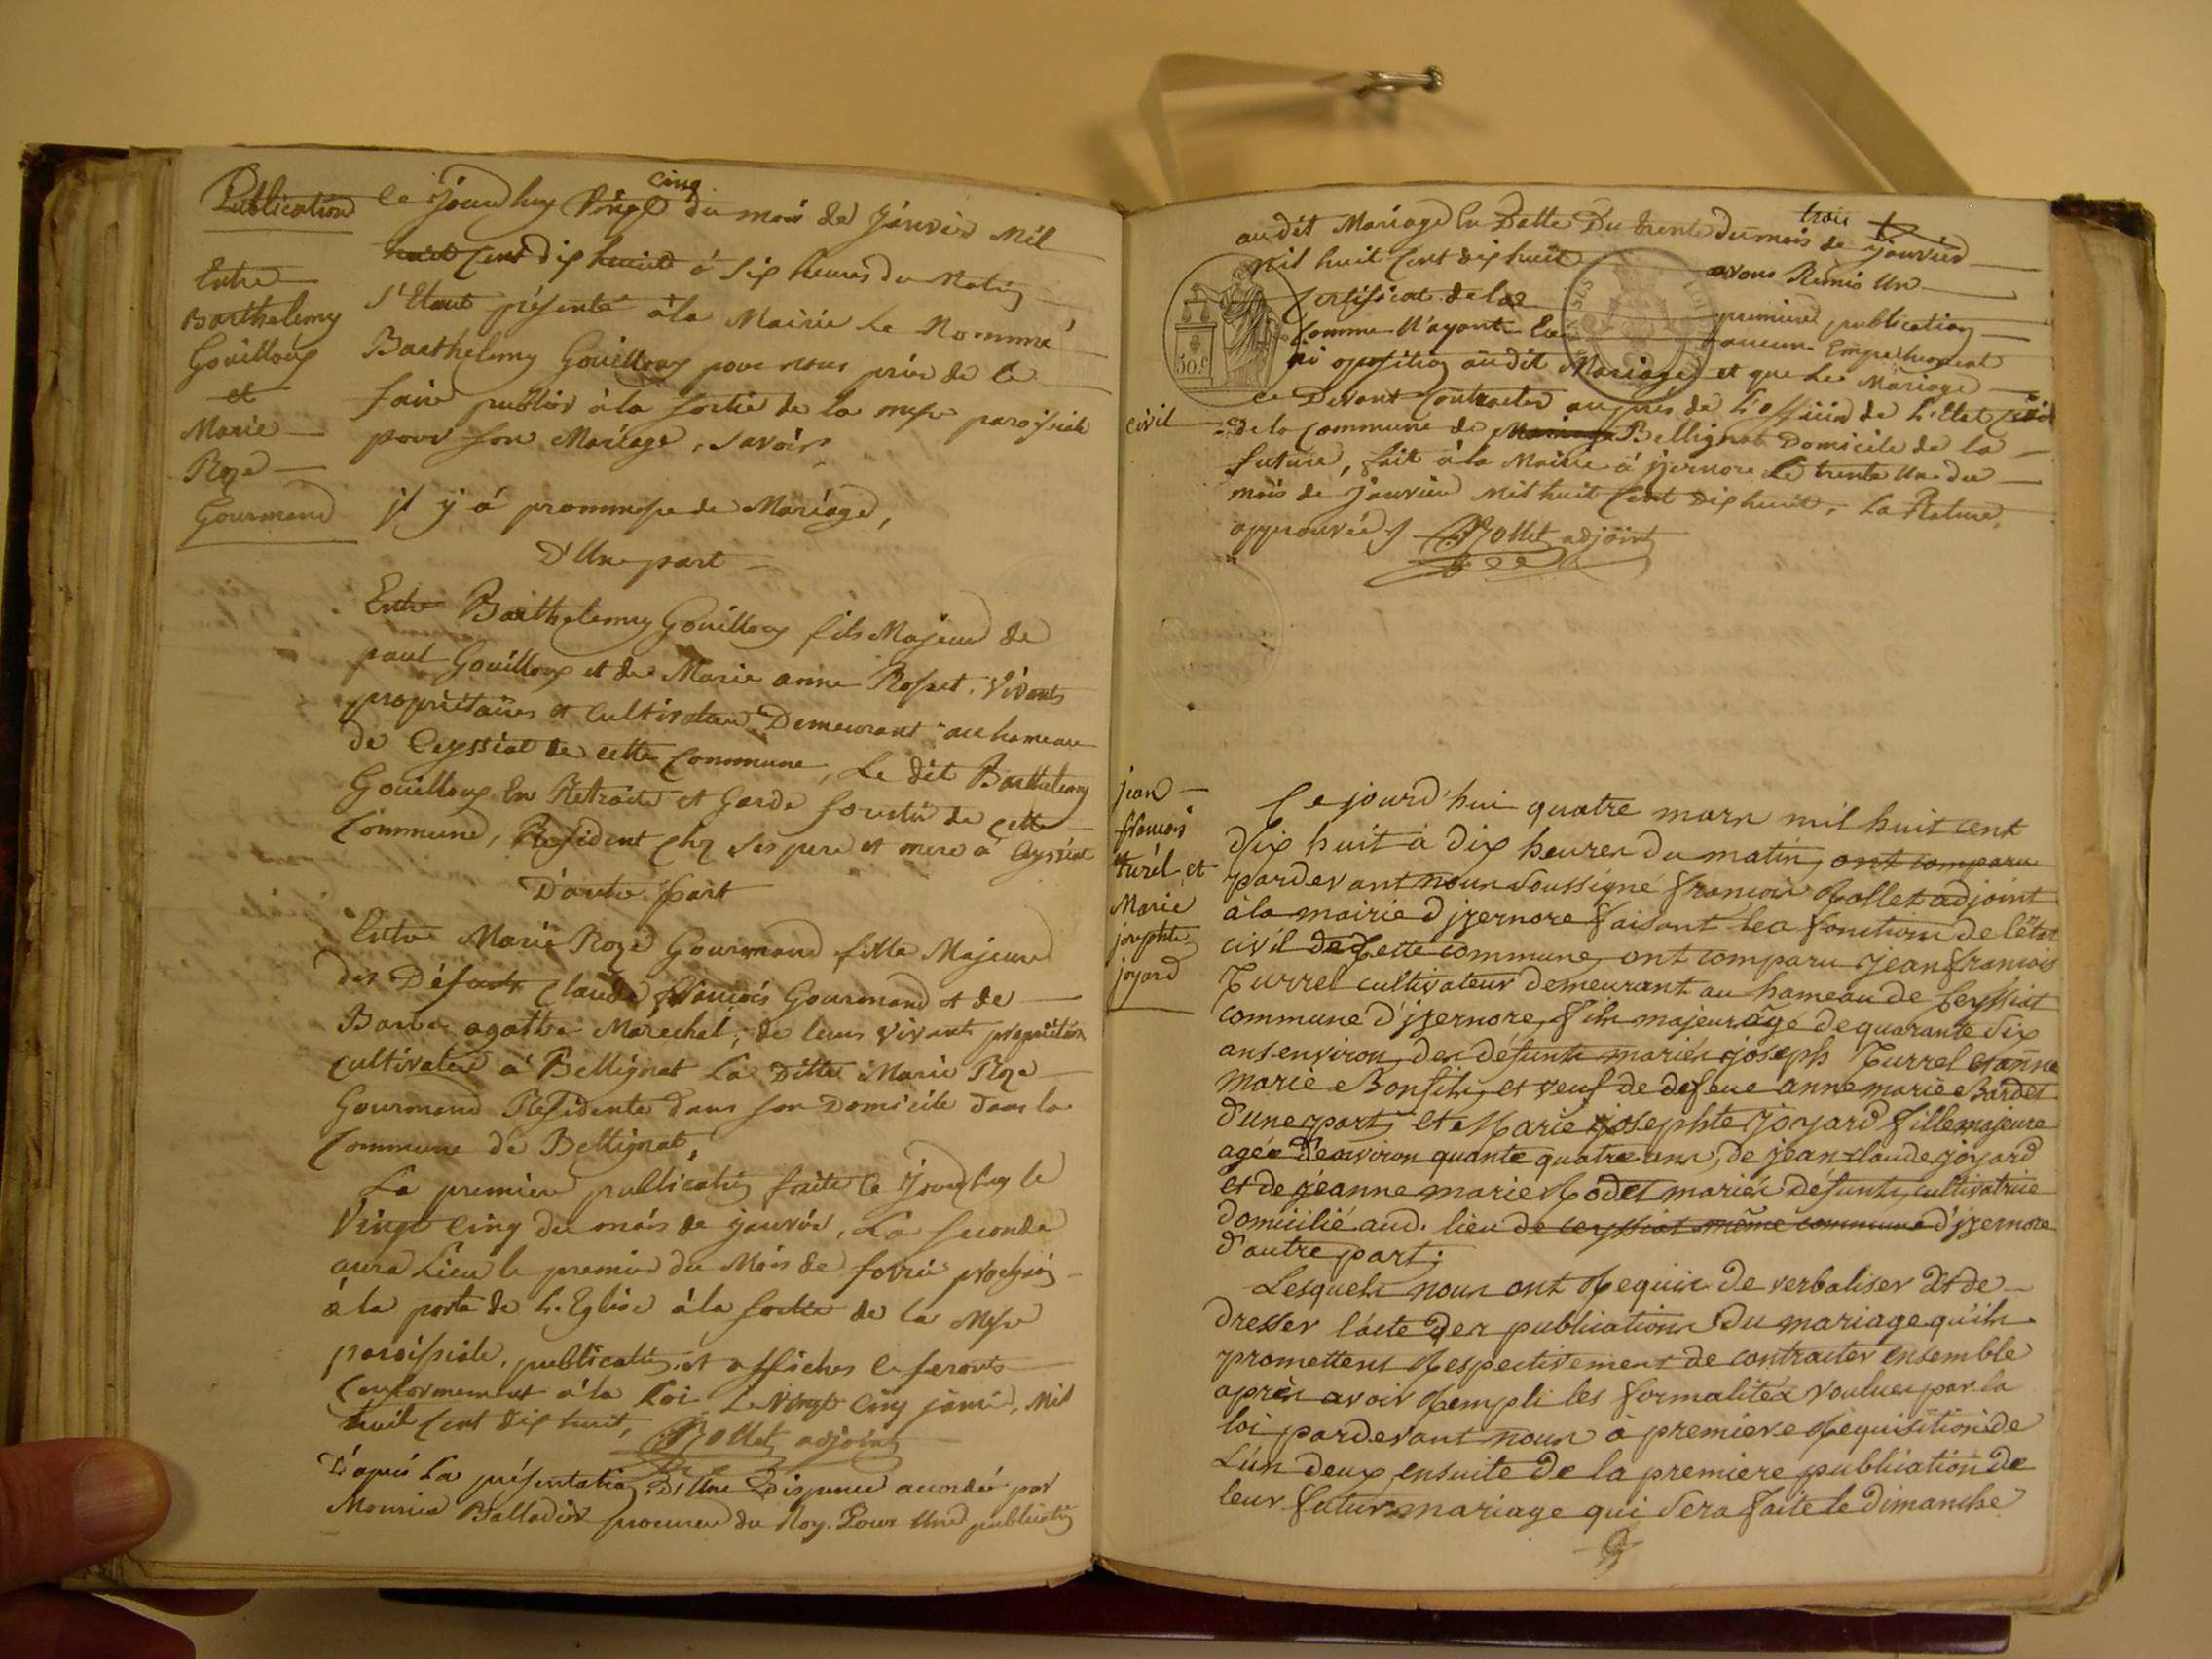 Publication
Entre
Barthelemy
Gouilloux
et
Marie
Roze
Gourmand
Ce Jourdhuy Vingt cinq du mois de Janvier Mil
huit Cent dix huit à six heures du Matin
S'Etant présenté à la Mairie le Nommé
Barthelemy Gouilloux pour nous prier de le
faire publier à la sortie de la messe paroissiale
pour son Mariage, Savoir
il y á prommesse de Mariage,
D'Une part
Entre Barthelemy Gouilloux fils Majeur de
paul Gouilloux et de Marie anne Rosset, Vivants
propriétaires et Cultivateur Demeurant au hameau
de Ceyssiat de cette Commune, Le dit Barthelemy
Gouilloux En Retraite et Garde forestier de Cette
Commune, Resident Chez Ses pere et mere à Ceyssiat
D'autre part
Entre Marie Roze Gourmand fille Majeure
des Défunts Claude françois Gourmand et de
Barbe agathe Marechal, de leurs vivant propriétaire
Cultivateur à Bellignat La Ditte Marie Roze
Gourmand Residente dans son Domicile dans la
Commune de Bellignat,
La premiere publication faite Ce Jourdhuy le
Vingt Cinq du mois de janvier, La Seconde
aura Lieu le premier du Mois de fevrier prochain
à la porte de L'Eglise à la sortie de la Messe
paroissiale, publication et affiches Ce feronts
Conformement à la Loi Le Vingt Cinq janvier, Mil
huit Cent dix huit, Rollet adjoint
D'apres La présentation D'Une Dispense accordée par
Monsieur Balladier procureur du Roy. Pour Une publication
au dit Mariage En Datte Du trente du mois de trois Janvier
Mil huit Cent dix huit avons Remis Un
Certificat de la premiere publication
Comme N'ayant Eu aucun Empechement
ni opposition audit Mariage et que Le Mariage
50 c
ce Devant Contracter auprès de L'officier de L'Etat Civil
civil de la Commune de Mariage Bellignat Domicile de la
future, fait à la Mairie á izernore Le trente Un du
mois de Janvier Mil huit Cent Dix huit, La Rature
approuvée Rollet adjoint
jean
francois
turél et
Marie
josephte
joyard
Ce jourd'hui quatre mars mil huit cent
dix huit à dix heures du matin, ont comparu
pardevant nous soussigné francois Rollet adjoint
à la mairie d'izernore faisant les fonctions de l'état
civil de Cette commune, ont comparu jean francois
Turrel cultivateur demeurant au hameau de Ceyssiat
commune d'izernore, fils majeur âgé de quarante six
ans environ des défunts mariés joseph Turrel et anne
marie Bonfils, et veuf de defeue anne marie Bardet
d'une part, et Marie josephte joyard fille majeure
agée d'environ quante quatre ans, de jean claude joyard
et de jeanne marie Rodet mariés défunts, cultivatrice
domicilié aud. lieu de ceyssiat même commune d'izernore
d'autre part;
Lesquels nous ont Requis de verbaliser et de
dresser l'acte des publications du mariage qu'ils
promettent Respectivement de contracter ensemble
après avoir Rempli les formalités voulues par la
loi pardevant nous à premiere Requisition de
L'un deux ensuite de la premiere publication de
leur futur mariage qui sera faite le dimanche